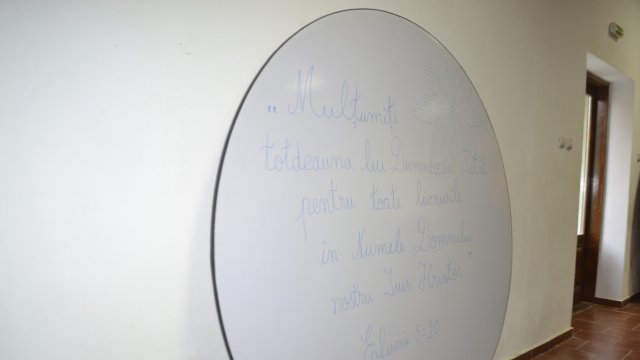 „Mulțumiți
totdeauna lui Dumnezeu Tatăl
pentru toate lucrurile
în Numele Domnului
nostru Isus Hristos"
Efeseni 5:20